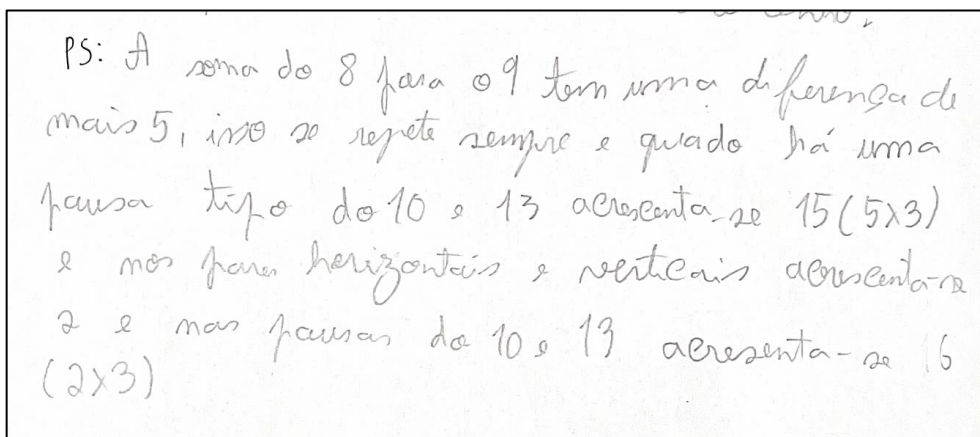 PS: A soma do 8 para o 9 tem uma diferença de
mais 5, isso se repete sempre e quado há uma
pausa tipo do 10 e 13 acrescenta-se 15 (5x3)
e nos pares horizontais e verticais acrescenta-se
2 e nas pausas do 10 e 13 acresenta-se 6
(2x3)